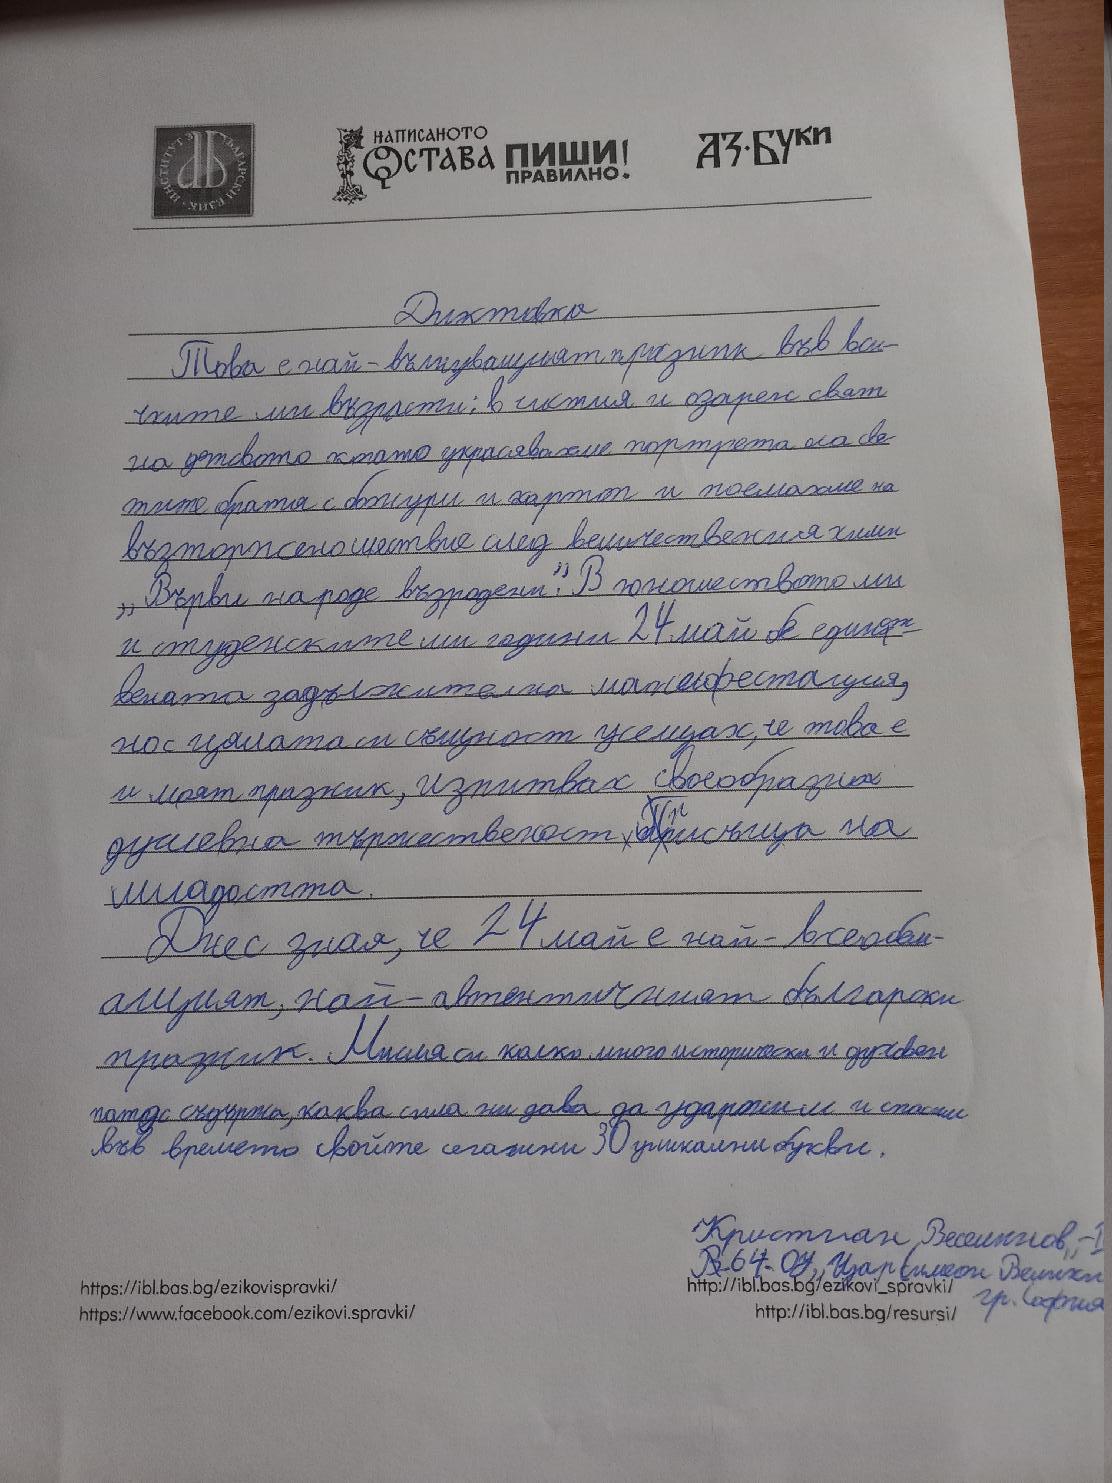 ИНСТИТУТ ЗА БЪЛГАРСКИ ЕЗИК
НАПИСАНОТО
ОСТАВА ПИШИ!
ПРАВИЛНО.
АЗ·БУКИ
Диктовка
Това е най-вълнуващият празник във вси-
чките ми възрасти: в чистия и озарен свят
на детсвото когато украсявахме портрета на све-
тите братя с божури и картон и поемахме на
възторжено шествие след величествения химн
„Върви на роде възродени". В юношеството ми
и студенските ми години 24 май бе единст-
вената задължителна манифестация,
но с цялата си същност усещах, че това е
и моят празник, изпитвах своеобразна
душевна тържественост присъща на
младостта.
Днес зная, че 24 май е най-всеобхв-
ащият, най-автентичният български
празник. Мисля си колко много исторически и духовен
патос съдържа, каква сила ни дава да удържим и спасим
във времето свойте сегашни 30 уникални букви.
Кристиан Веселинов, -
64. ОУ „Цар Симеон Велики
гр. София
https://ibl.bas.bg/ezikovispravki/
http://ibl.bas.bg/ezikovi_spravki/
https://www.facebook.com/ezikovi.spravki/
http://ibl.bas.bg/resursi/